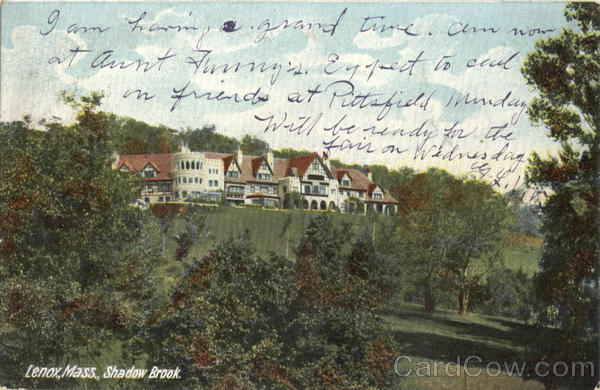 I am having a grand time. Am now
at Aunt Fanny's. Expect to call
on friends at Pittsfield Monday
Will be ready for the
Fair on Wednesday
Lenox, Mass., Shadow Brook.
CardCow.com